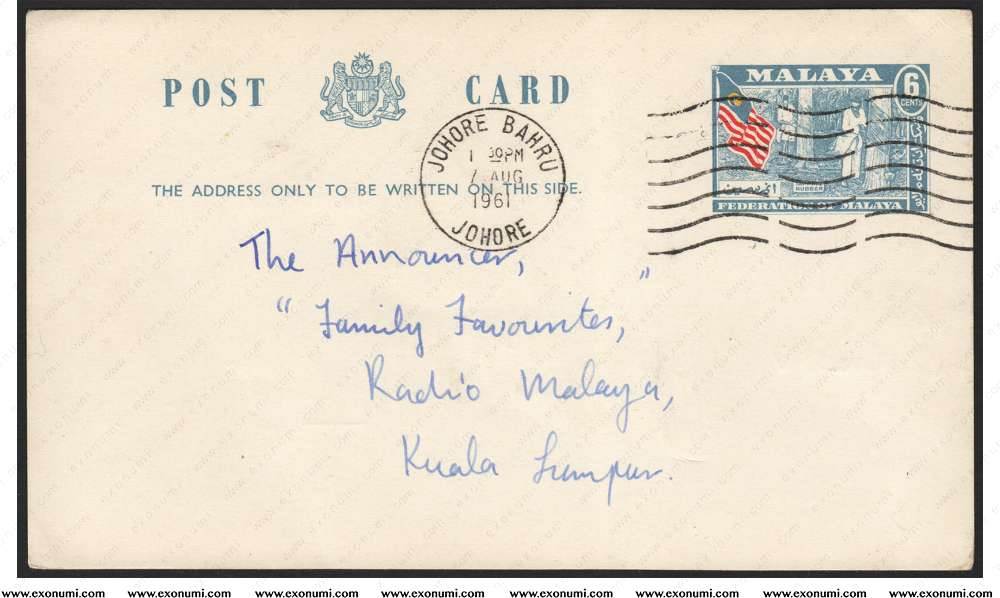 POST CARD
THE ADDRESS ONLY TO BE WRITTEN ON THIS SIDE.
MALAYA
6
CENTS
RUBBER
FEDERATION OF MALAYA
JOHORE BAHRU
PM
7 AUG
1961
JOHORE
The Announcer,
"Family Favourites,"
Radio Malaya,
Kuala Lumpur.
www.exonumi.com www.exonumi.com www.exonumi.com www.exonumi.com www.exonumi.com www.exonumi.com www.exonumi.com www.exonumi.com